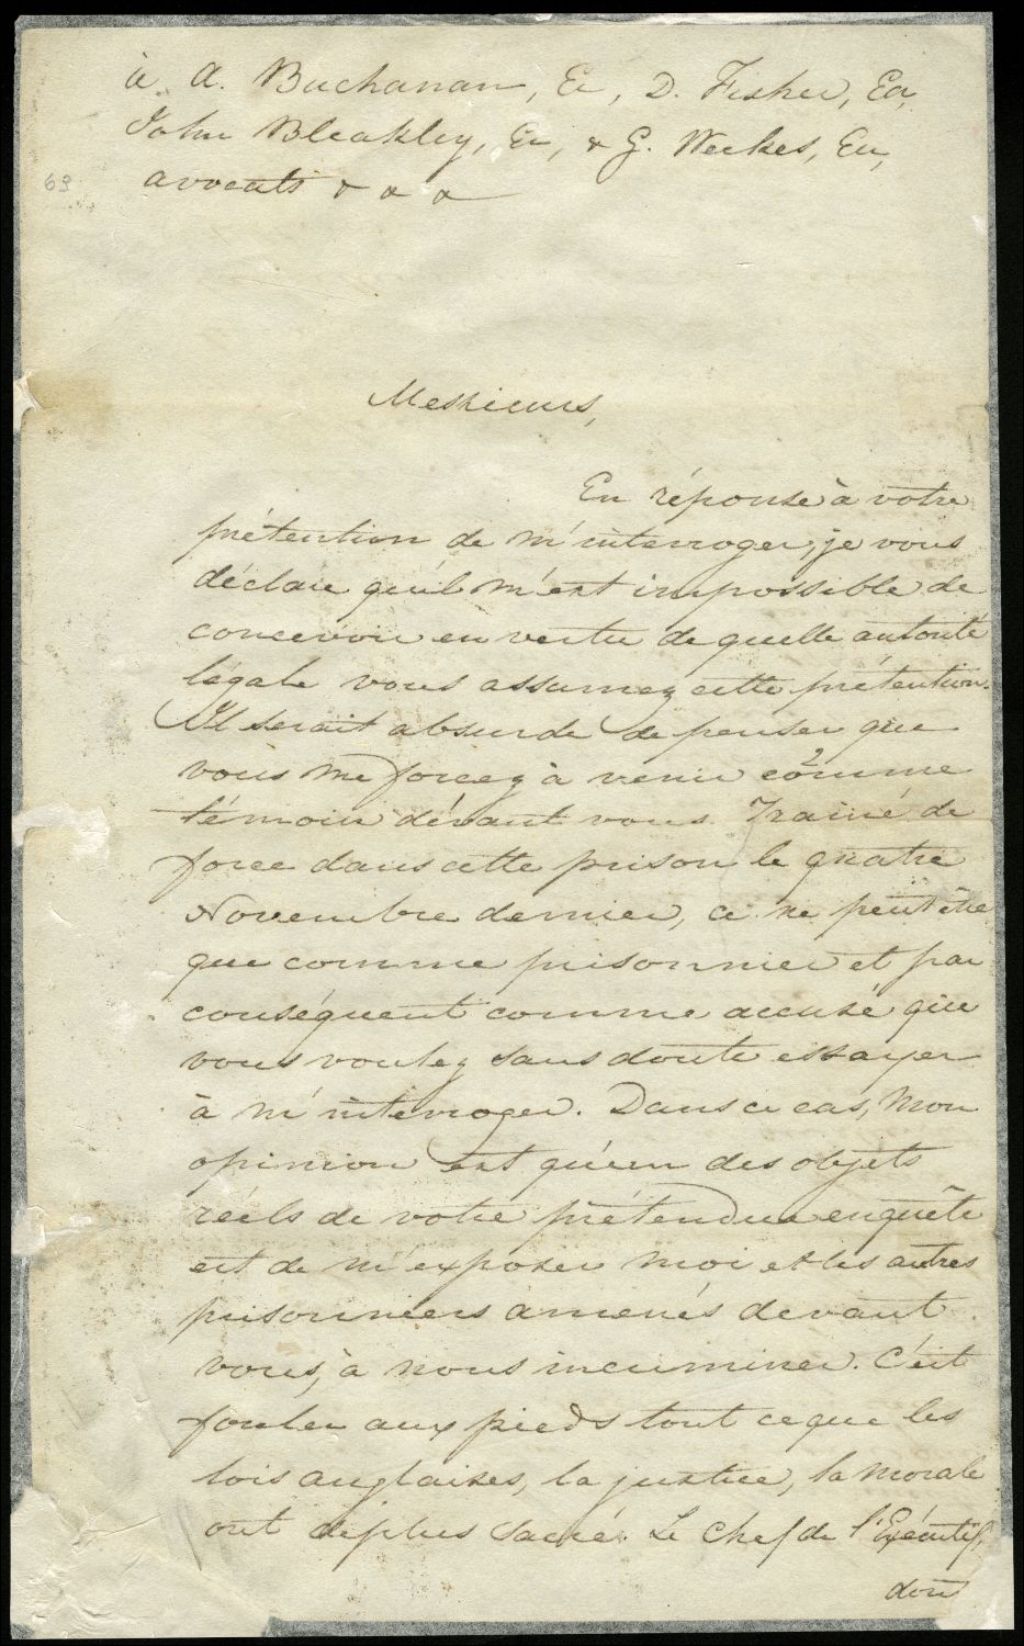 à A. Buchanan, Er, D. Fisher, Er,
John Bleakley, Er, & G. Weekes, Er,
avocats & a a
63
Messieurs,
En réponse à votre
prétention de m'interroger, je vous
déclare qu'il m'est impossible de
concevoir en vertu de quelle autorité
légale vous assumez cette prétention.
Il serait absurde de penser que
vous me forcez à venir comme
témoin dévant vous. Trainé de
force dans cette prison le quatre
Novembre dernier, ce ne peut être
que comme prisonnier et par
conséquent comme accusé que
vous voulez sans doute essayer
à m'interroger. Dans ce cas, mon
opinion est qu'un des objets
réels de votre prétendue enquête
est de m'exposer moi et les autres
prisonniers amenés devant
vous, à nous incriminer. C'est
fouler aux pieds tout ce que les
lois anglaises, la justice, la morale
ont de plus sacré. Le Chef de l'Exécutif,
dont